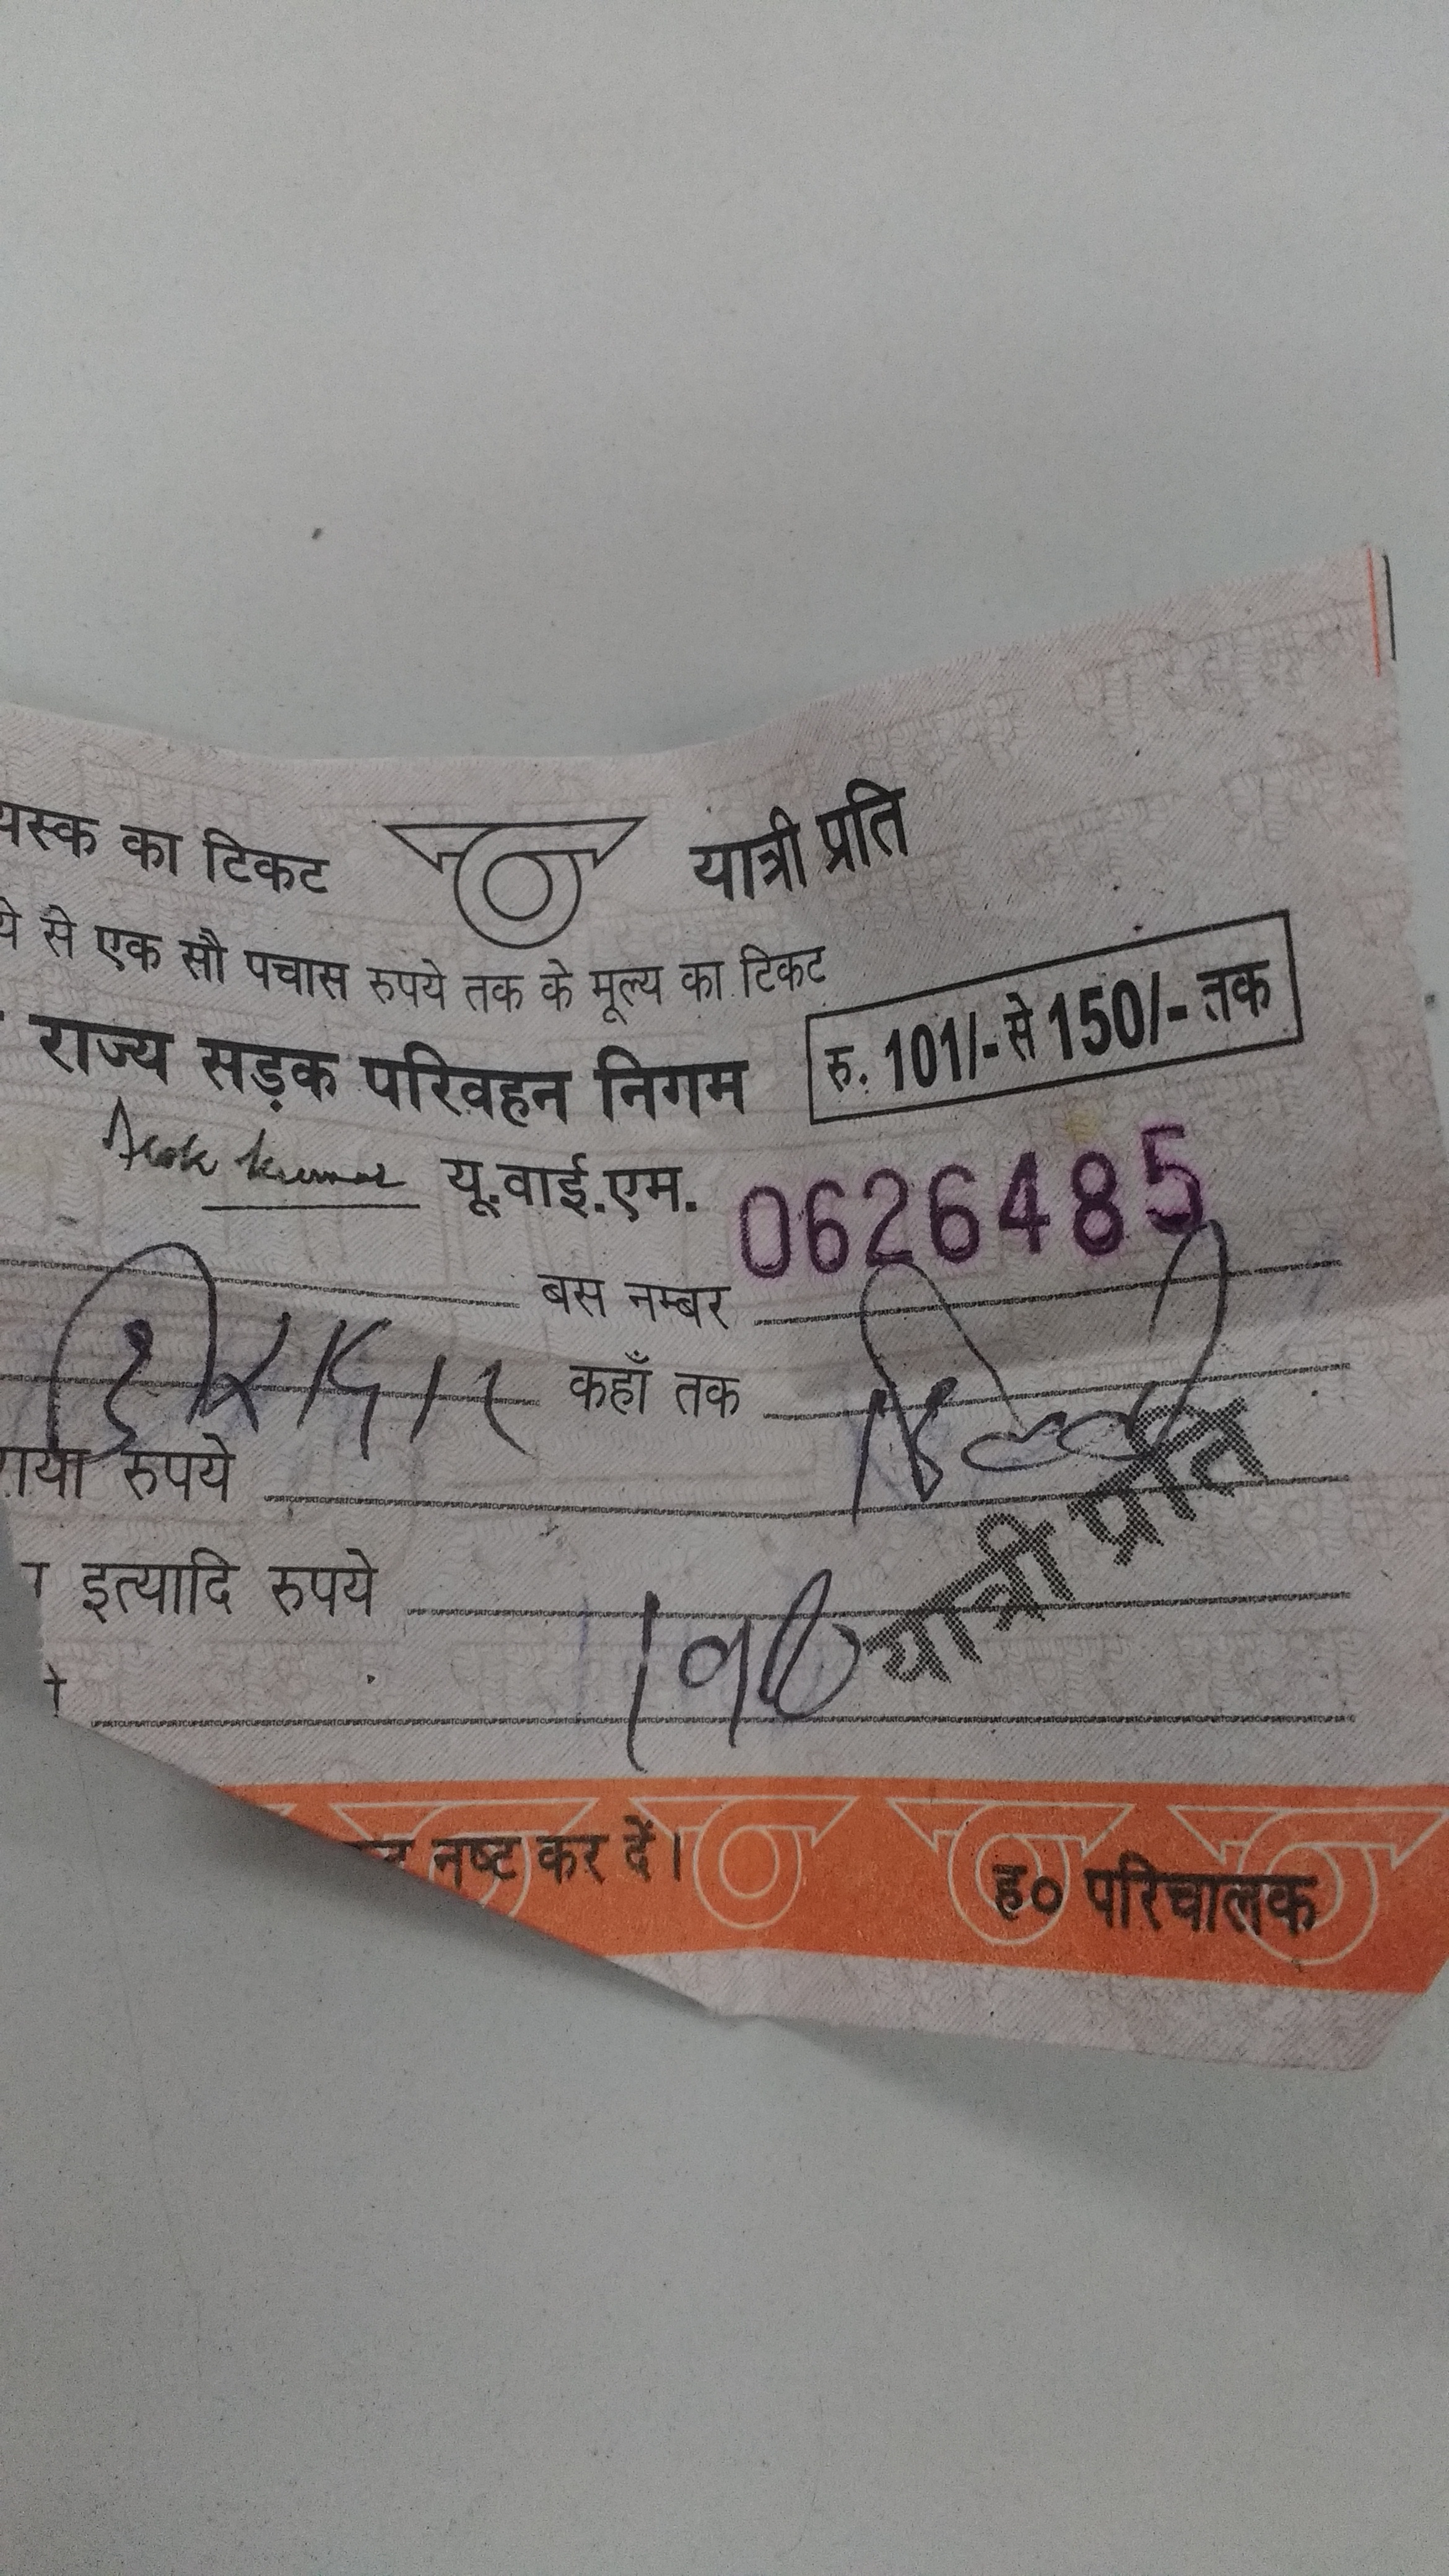 यस्क का टिकट यात्री प्रति
ये से एक सौ पचास रुपये तक के मूल्य का टिकट
राज्य सड़क परिवहन निगम रु. 101/- से 150/- तक
यू.वाई.एम. 0626485
बस नम्बर
कहाँ तक
गया रुपये
इत्यादि रुपये
यात्री प्रति
नष्ट कर दें। ह० परिचालक